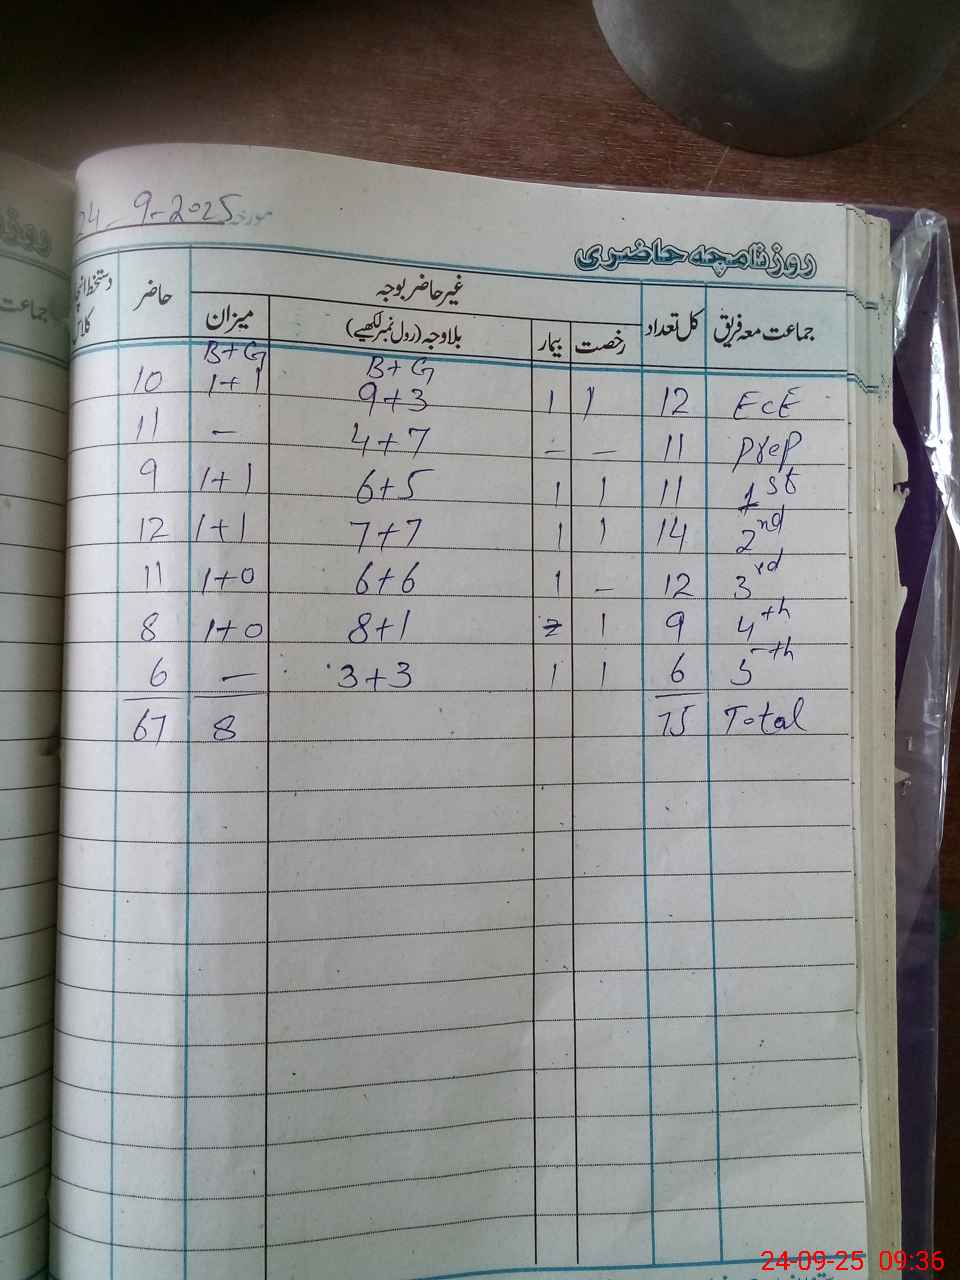 24-9-2025 مورخہ
روزنامچہ حاضری
جماعت معہ فریق کل تعداد غیر حاضر بوجہ حاضر دستخط
رخصت بیمار بلاوجہ (رول نمبر لکھیے) میزان
B+G B+G
10 1+1 9+3 1 1 12 EcE
11 - 4+7 - - 11 prep
9 1+1 6+5 1 1 11 1st
12 1+1 7+7 1 1 14 2nd
11 1+0 6+6 1 - 12 3rd
8 1+0 8+1 2 1 9 4th
6 - 3+3 1 1 6 5th
67 8 75 Total
24-09-25 09:36